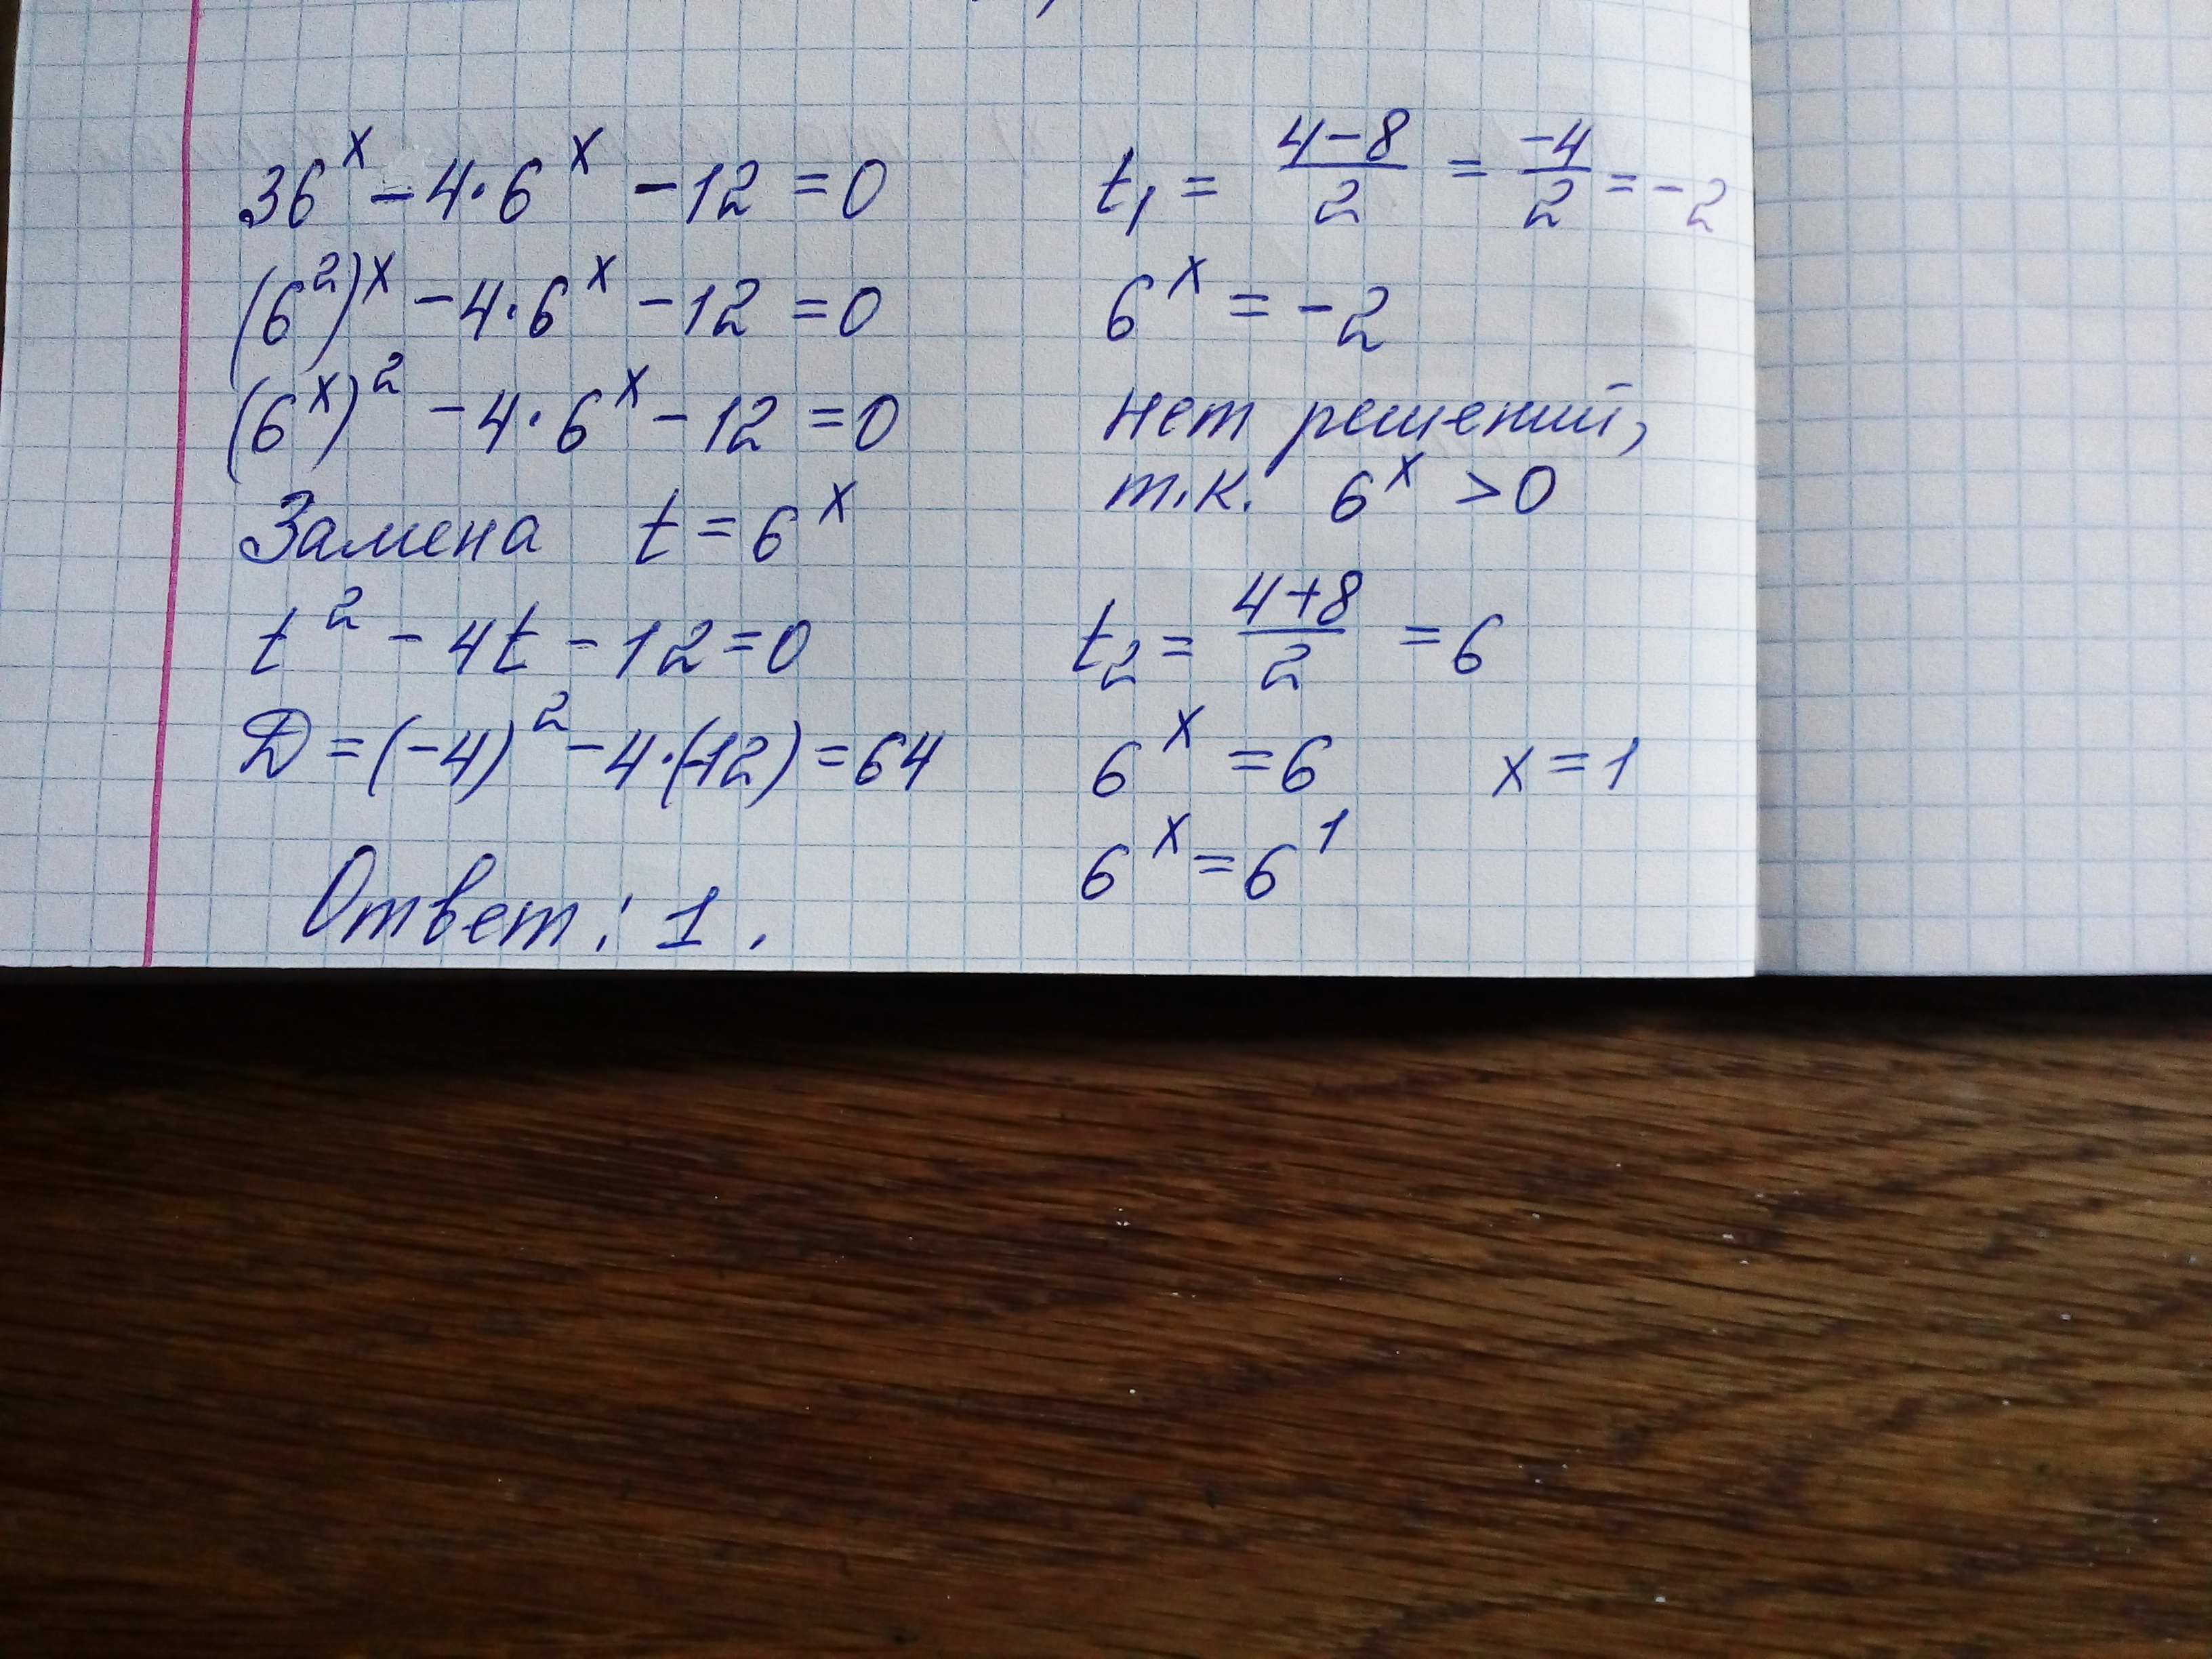 36^x - 4·6^x - 12 = 0
(6^2)^x - 4·6^x - 12 = 0
(6^x)^2 - 4·6^x - 12 = 0
Замена t = 6^x
t^2 - 4t - 12 = 0
D = (-4)^2 - 4·(-12) = 64
Ответ: 1.
t₁ = (4-8)/2 = -4/2 = -2
6^x = -2
нет решений,
т.к. 6^x > 0
t₂ = (4+8)/2 = 6
6^x = 6 x = 1
6^x = 6^1